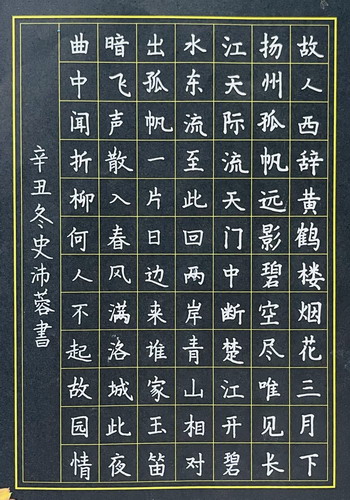 故人西辞黄鹤楼烟花三月下
扬州孤帆远影碧空尽唯见长
江天际流天门中断楚江开碧
水东流至此回两岸青山相对
出孤帆一片日边来谁家玉笛
暗飞声散入春风满洛城此夜
曲中闻折柳何人不起故园情
辛丑冬史沛蓉書